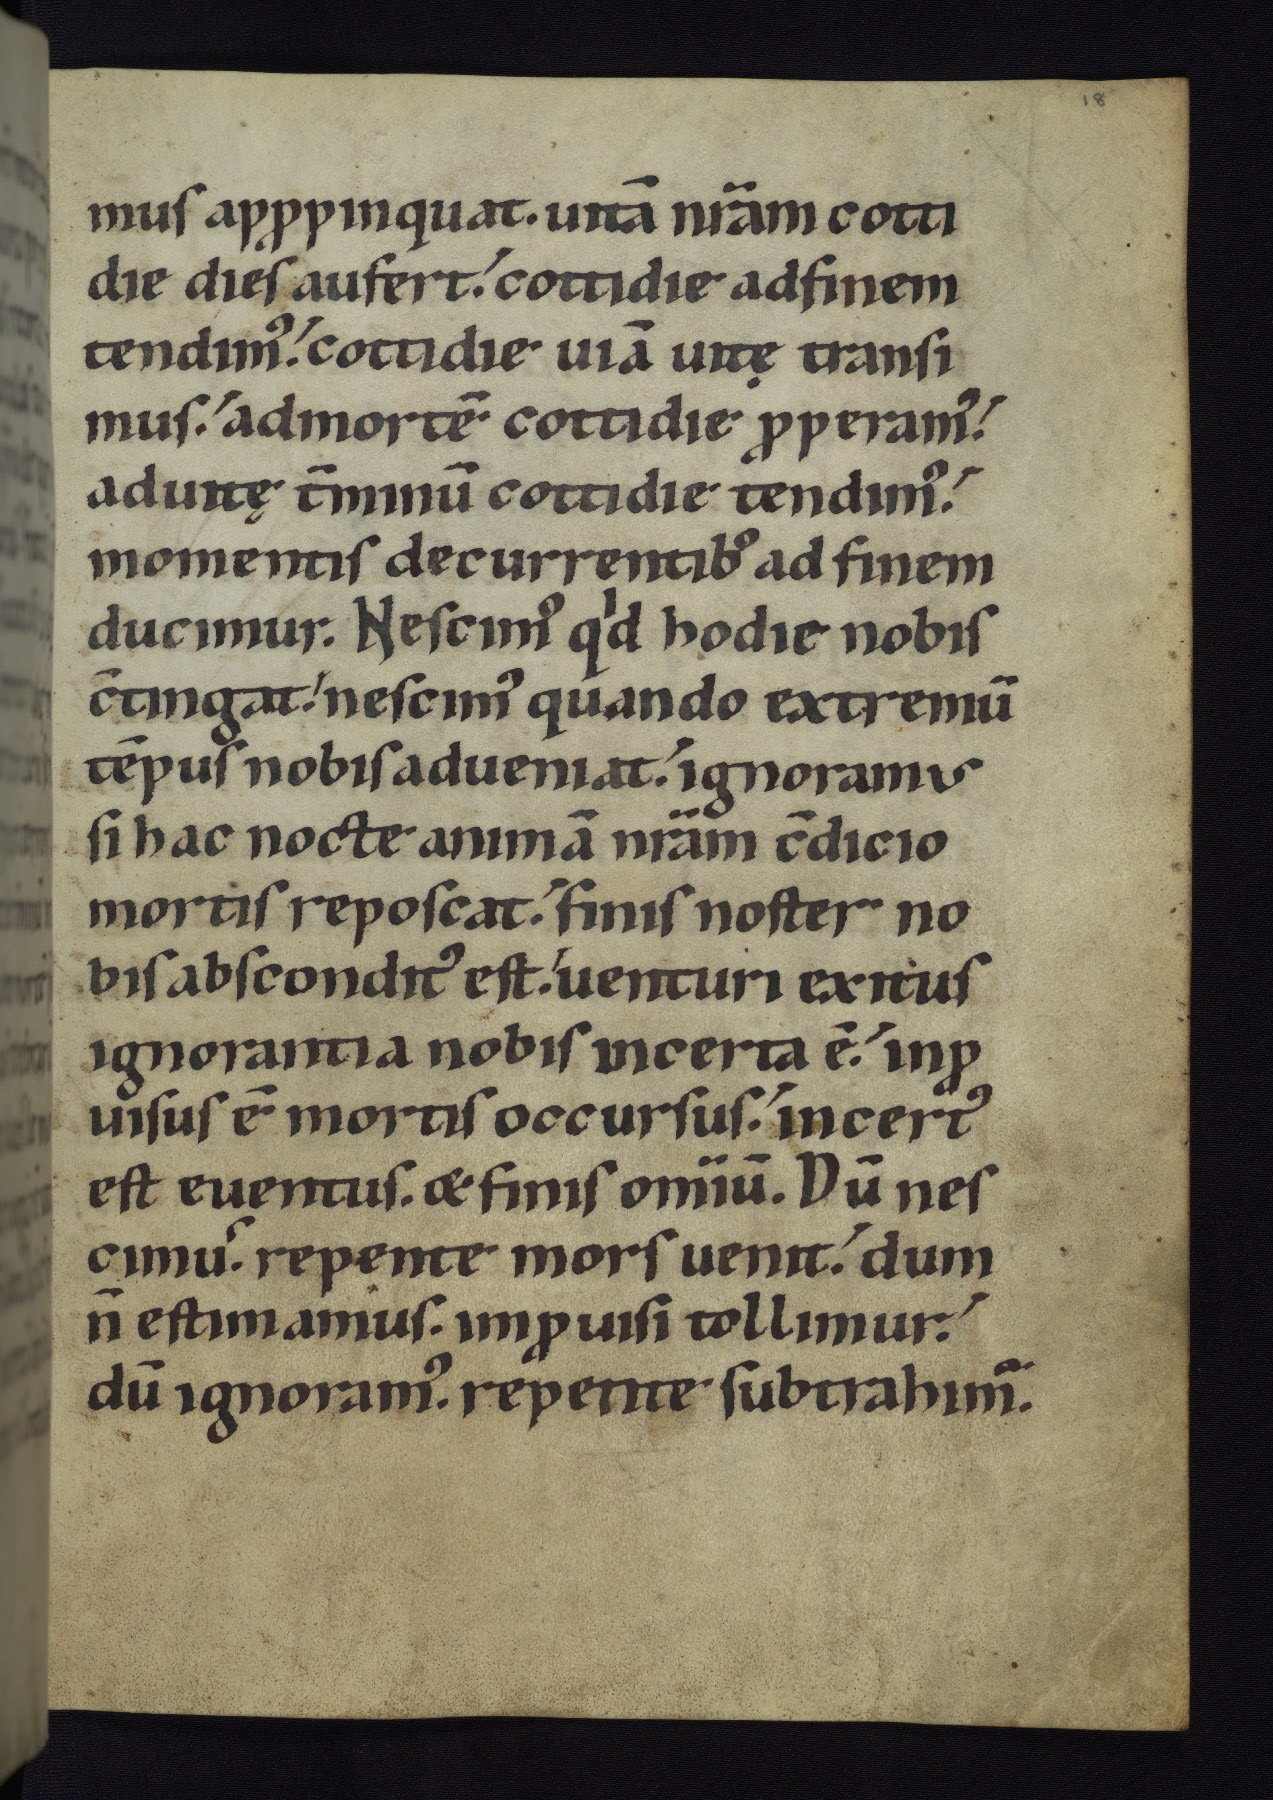 18
mus apꝓpinquat. uitā nr̄am cotti
die dies aufert. cottidie adfinem
tendim᷒. cottidie uiā uitę transi
mus. admortē cottidie ꝓperam᷒.
aduitę t̄minū cottidie tendim᷒.
momentis decurrentib᷒ ad finem
ducimur. Nescim᷒ qͥd hodie nobis
c̄tingat. nescim᷒ quando extremū
tēpus nobis adueniat. ignoramus
si hac nocte animā nr̄am c̄dicio
mortis reposcat. finis noster no
bis abscondit᷒ est. uenturi exitus
ignorantia nobis incerta ē. inꝓ
uisus ē mortis occursus. incert᷒
est euentus. & finis om̄iū. Dū nes
cimus. repente mors uenit. dum
n̄ estimamus. imꝓuisi tollimur.
dū ignoram᷒. repente subtrahim̃.